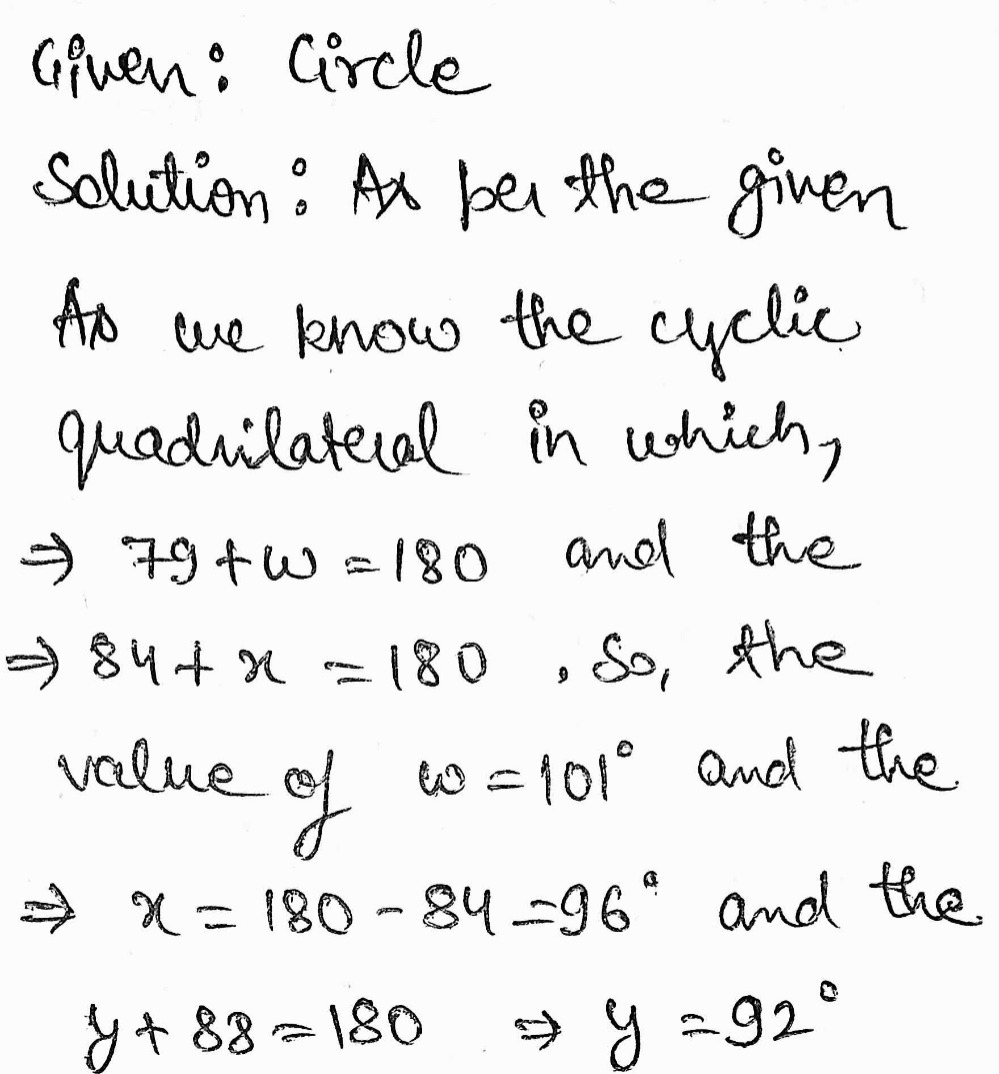 Given: Circle
Solution: As per the given
As we know the cyclic
quadrilateral in which,
⇒ 79+w=180 and the
⇒ 84+x=180 . So, the
value of w=101° and the
⇒ x=180-84=96° and the
y+88=180 ⇒ y=92°